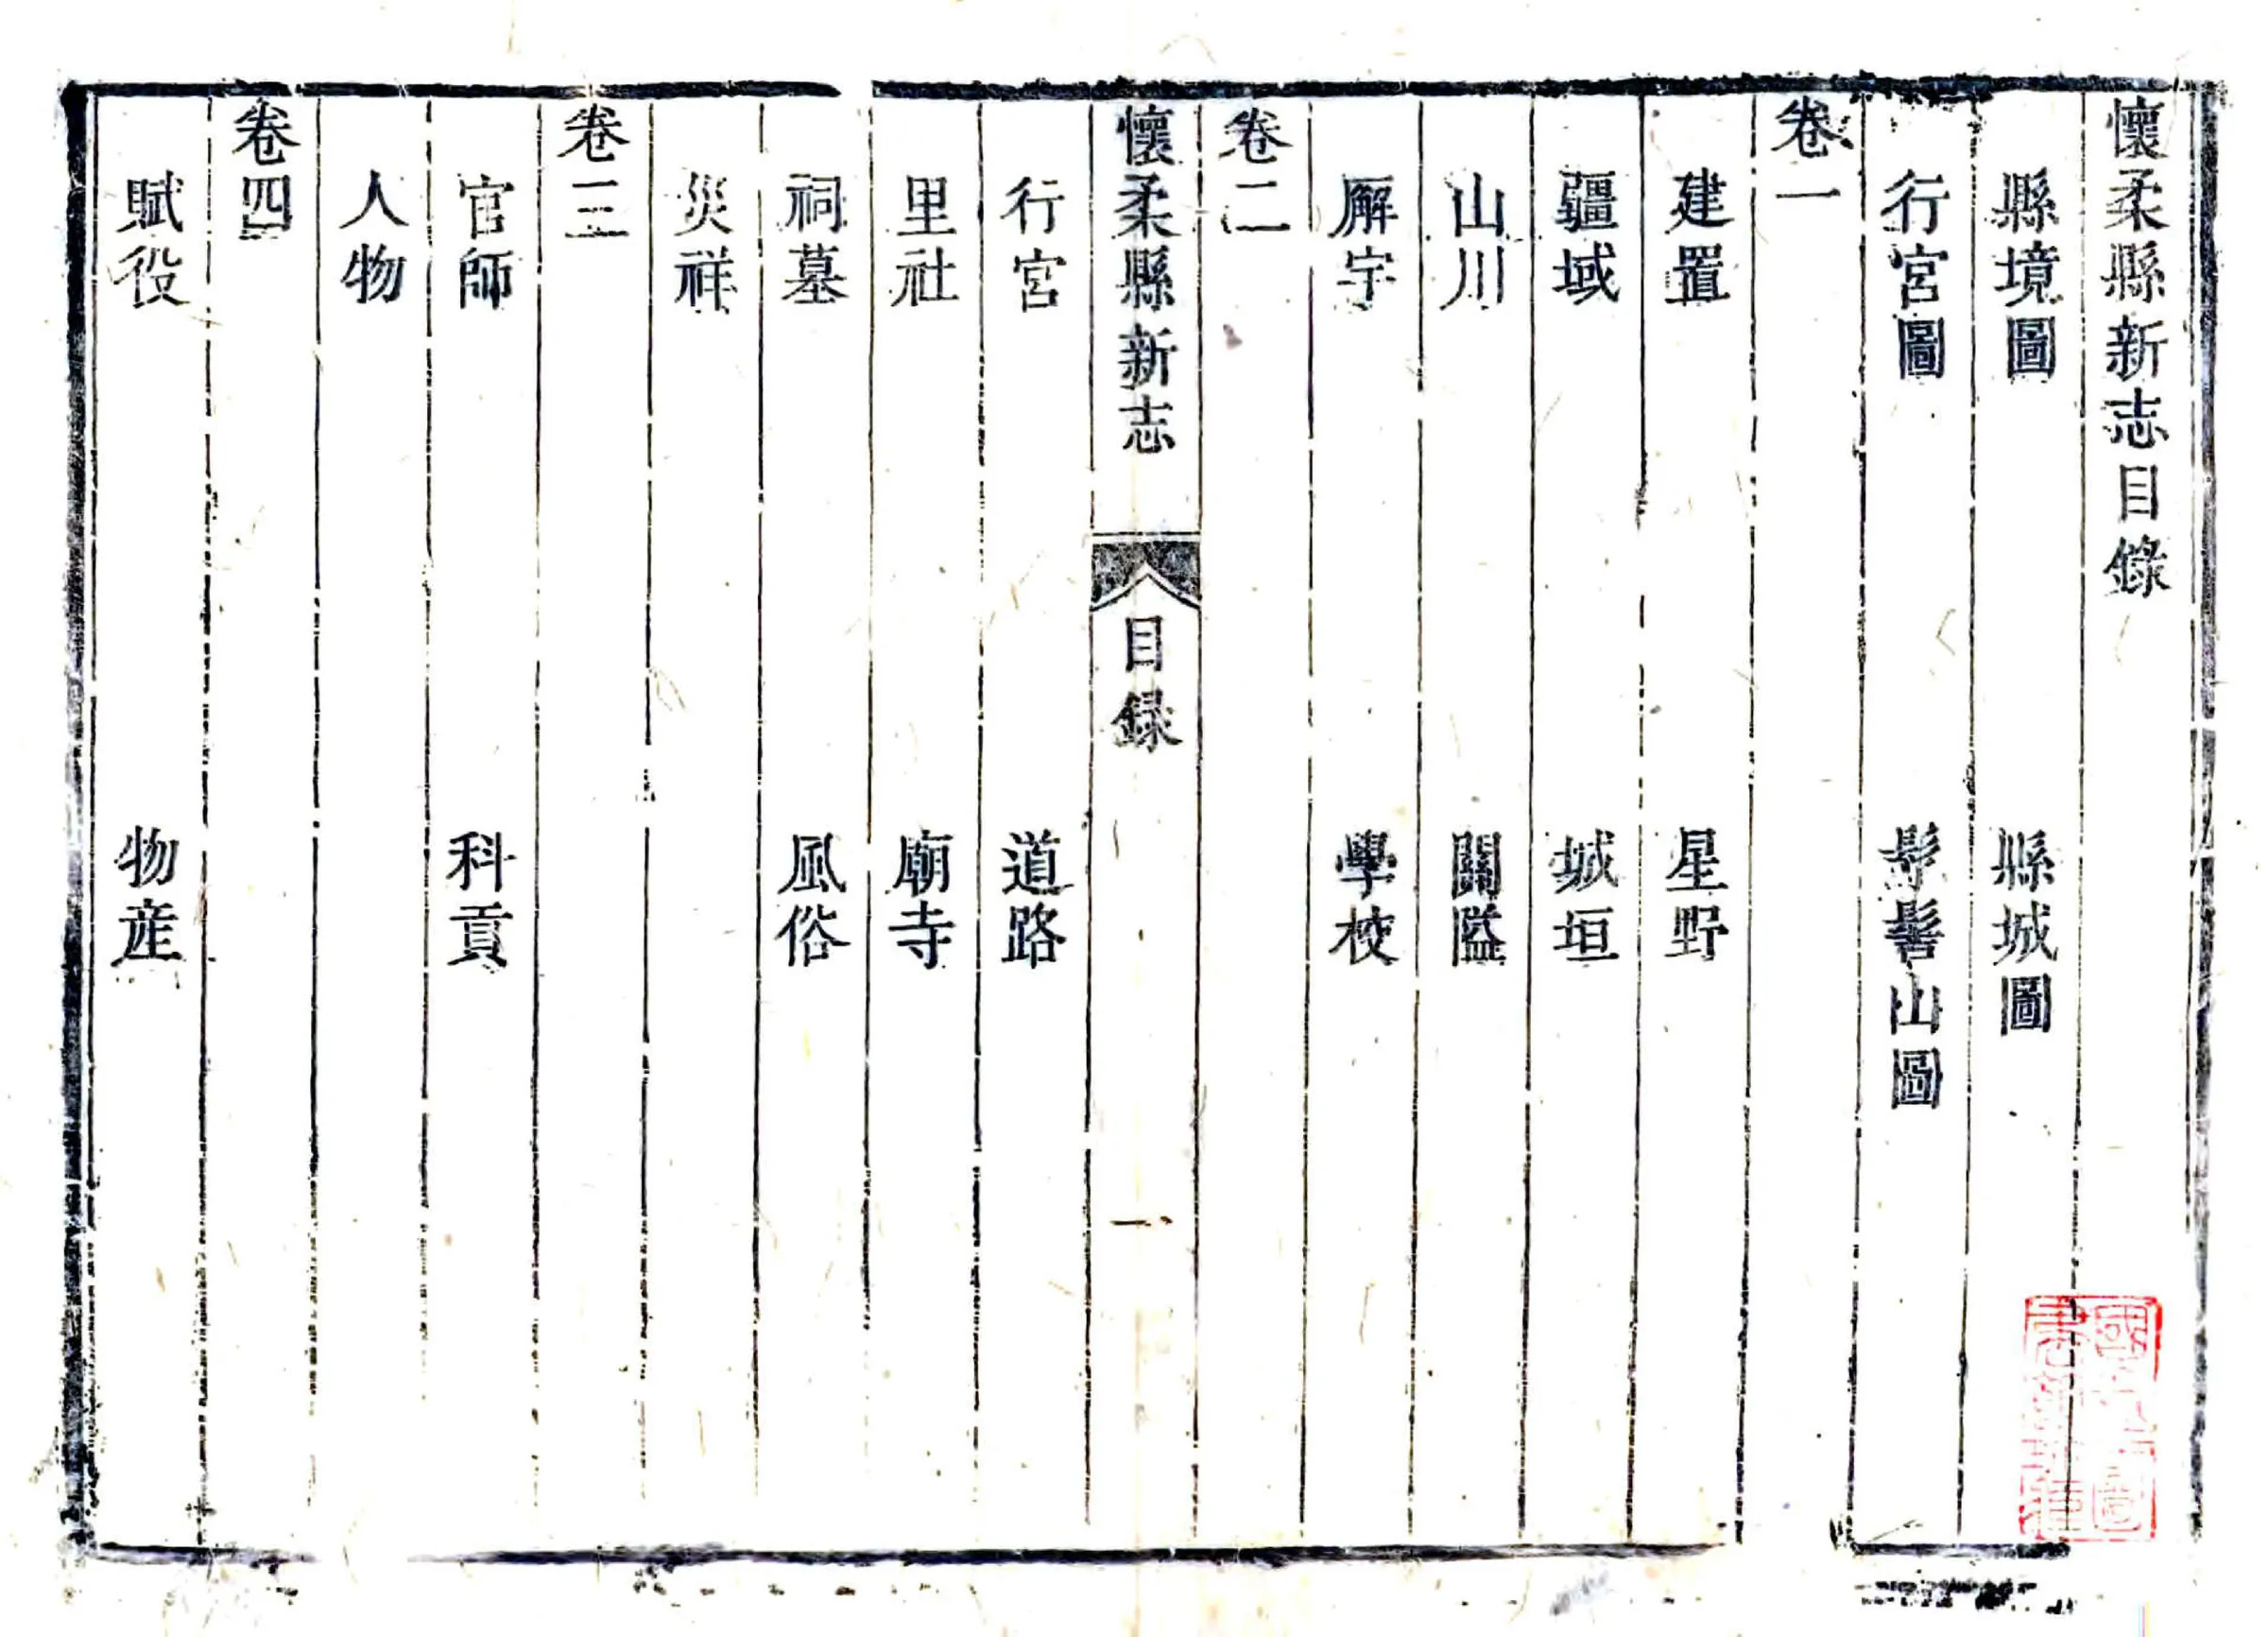 懷柔縣新志目錄
縣境圖 縣城圖
行宮圖 髻山圖
卷一
建置 星野
疆域 城垣
山川 關隘
廨宇 學校
卷二
懷柔縣新志 目録 一
行宮 道路
里社 廟寺
祠墓 風俗
災祥
卷三
官師 科貢
人物
卷四
賦役 物産